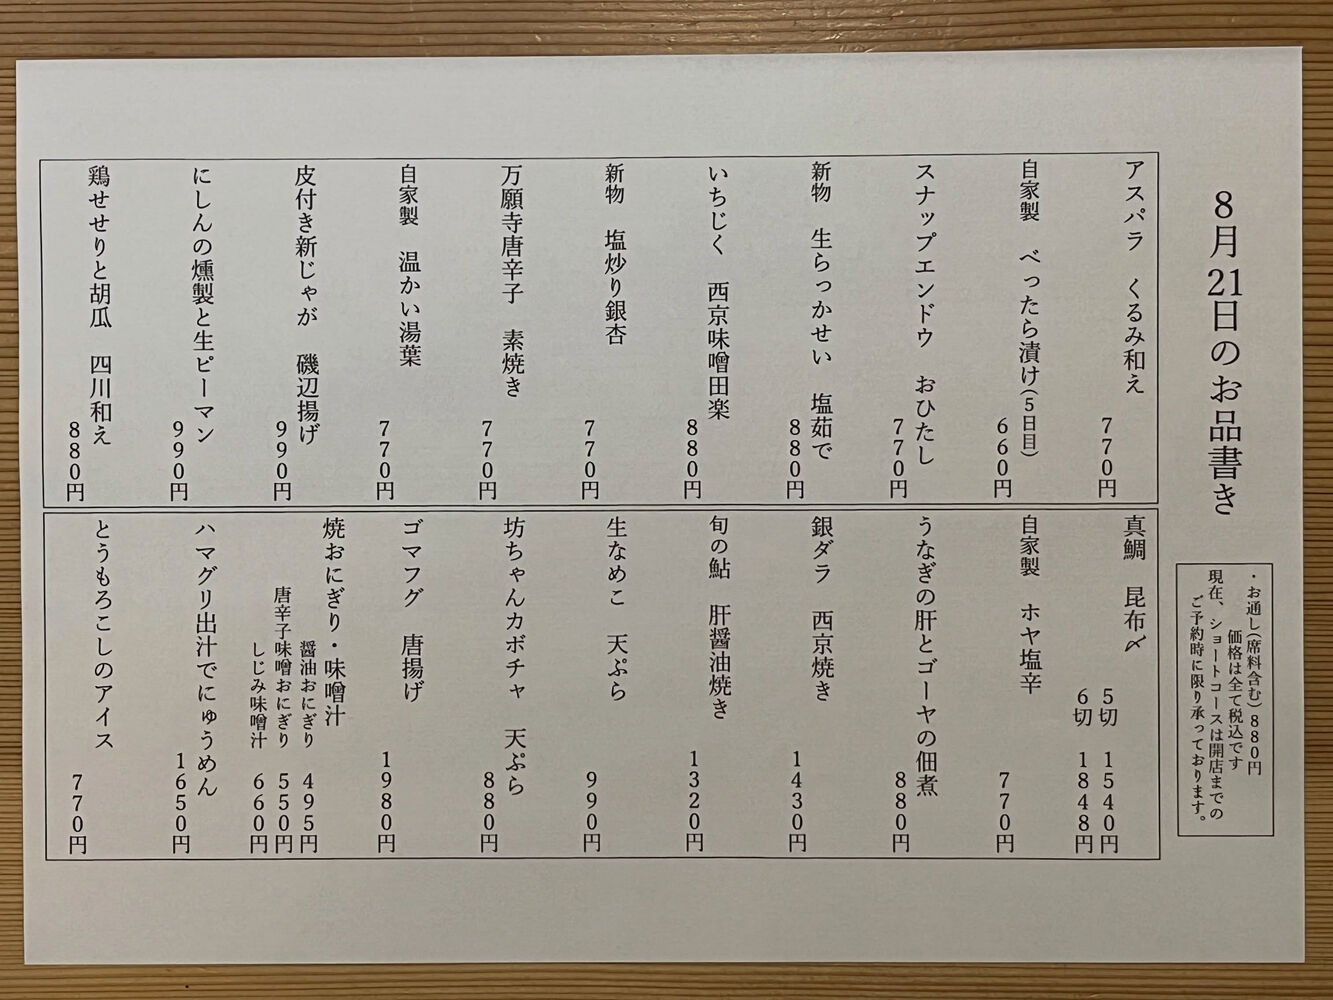 8月21日のお品書き
・お通し(席料含む)880円
価格は全て税込です
現在、ショートコースは開店までの
ご予約時に限り承っております。
アスパラ くるみ和え 770円
自家製 べったら漬け(5日目) 660円
スナップエンドウ おひたし 770円
新物 生らっかせい 塩茹で 880円
いちじく 西京味噌田楽 880円
新物 塩炒り銀杏 770円
万願寺唐辛子 素焼き 770円
自家製 温かい湯葉 770円
皮付き新じゃが 磯辺揚げ 990円
にしんの燻製と生ピーマン 990円
鶏せせりと胡瓜 四川和え 880円
真鯛 昆布〆
5切 1540円
6切 1848円
自家製 ホヤ塩辛 770円
うなぎの肝とゴーヤの佃煮 880円
銀ダラ 西京焼き 1430円
旬の鮎 肝醤油焼き 1320円
生なめこ 天ぷら 990円
坊ちゃんカボチャ 天ぷら 880円
ゴマフグ 唐揚げ 1980円
焼おにぎり・味噌汁
醤油おにぎり 495円
唐辛子味噌おにぎり 550円
しじみ味噌汁 660円
ハマグリ出汁でにゅうめん 1650円
とうもろこしのアイス 770円